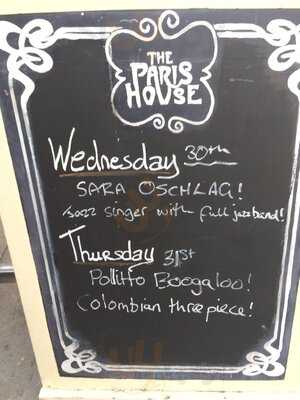 THE
PARIS
HOUSE
Wednesday 30th
SARA OSCHLAG!
Jazz singer with full jazz band!
Thursday 31st
Pollitto Boogaloo!
Colombian three piece!